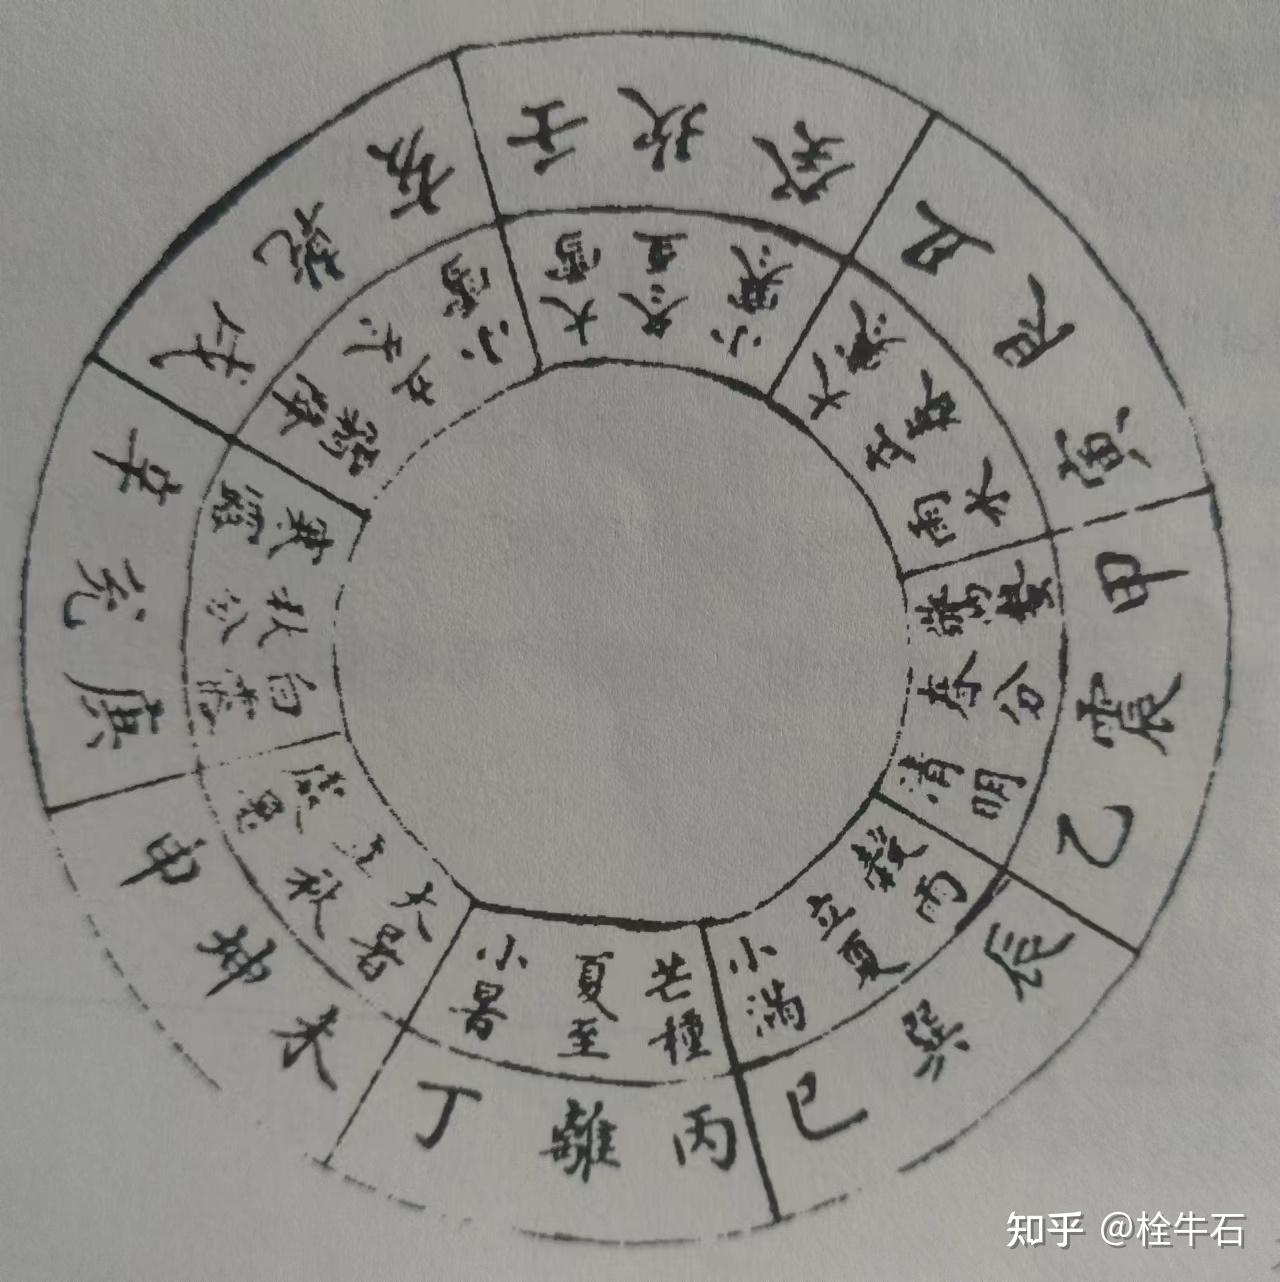 壬
坎
癸
丑
艮
寅
甲
震
乙
辰
巽
巳
丙
離
丁
未
坤
申
庚
兌
辛
戌
乾
亥
大雪
冬至
小寒
大寒
立春
雨水
驚蟄
春分
清明
穀雨
立夏
小滿
芒種
夏至
小暑
大暑
立秋
處暑
白露
秋分
寒露
霜降
立冬
小雪
知乎 @栓牛石